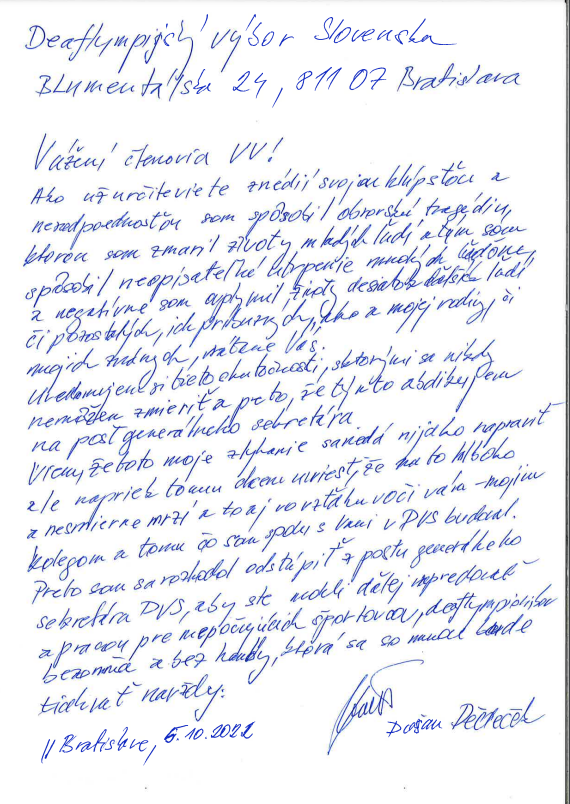 Deaflympijský výbor Slovenska
Blumentálska 24, 811 07 Bratislava
Vážení členovia VV!
Ako už určite viete z médií svojou hlúposťou a
nezodpovednosťou som spôsobil obrovskú tragédiu,
ktorou som zmaril životy mladých ľudí a tým som
spôsobil neopísateľné utrpenie mnohých
a negatívne som ovplyvnil životy desiatok ľudí,
či pozostalých, ich príbuzných, ako a mojej rodiny, či
mojich známych, vrátane Vás.
Uvedomujem si tieto skutočnosti, s ktorými sa nikdy
nemôžem zmieriť a preto, že týmto abdikujem
na post generálneho sekretára.
Viem, že toto moje zlyhanie sa nedá nijako napraviť
ale napriek tomu chcem uviesť, že ma to hlboko
a nesmierne mrzí a to aj vo vzťahu voči vám - mojim
kolegom a tomu čo sam spolu s Vami v DVS budoval.
Preto som sa rozhodol odstúpiť z postu generálneho
sekretára DVS, aby ste mohli ďalej napredovať
a pracou pre nepočujúcich športovcov, deaflympionikov
bezo mňa a bez hanby, ktorá sa so mnou bude
tiahnuť navždy.
V Bratislave, 5.10.2022
Dušan Dědeček